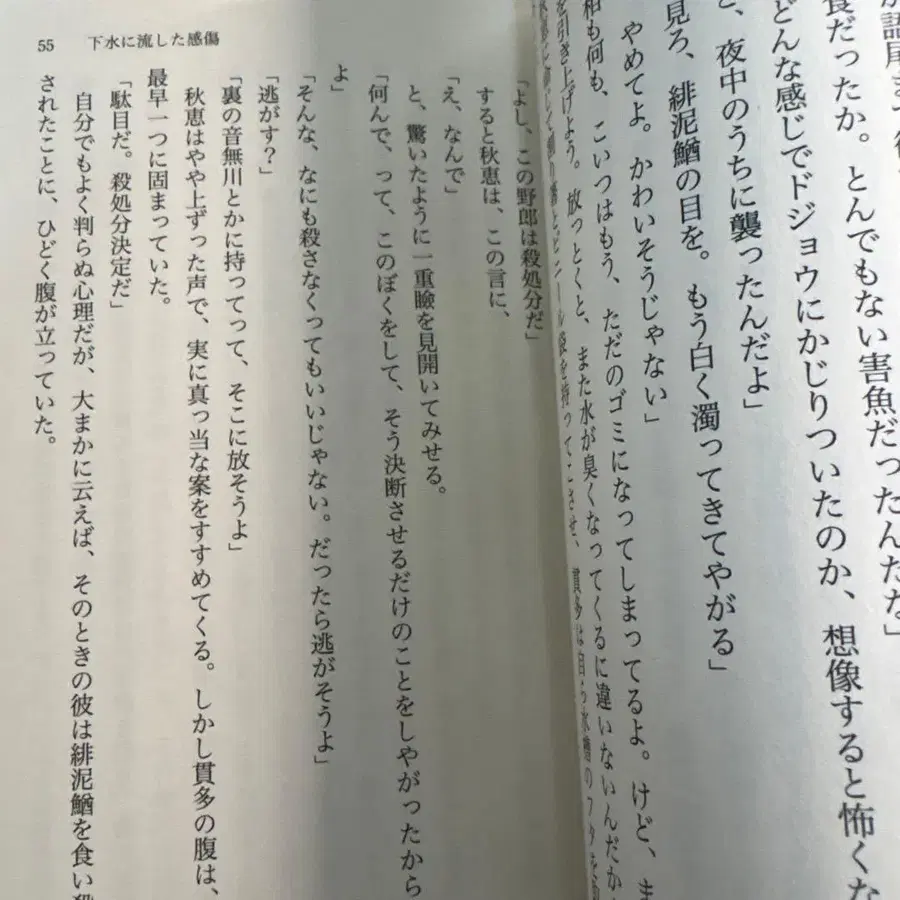 が語尾まで
食だったか。とんでもない害魚だったんだな」
どんな感じでドジョウにかじりついたのか、想像すると怖くな
と、夜中のうちに襲ったんだよ」
見ろ、緋泥鰌の目を。もう白く濁ってきてやがる」
やめてよ。かわいそうじゃない」
相も何も、こいつはもう、ただのゴミになってしまってるよ。けど、ま
を引き上げよう。放っとくと、また水が臭くなってくるに違いないんだか
袋を持ってこさせ、貫多は自ら水槽のフタを
55 下水に流した感傷
「よし、この野郎は殺処分だ」
すると秋恵は、この言に、
「え、なんで」
と、驚いたように一重瞼を見開いてみせる。
「何んで、って、このぼくをして、そう決断させるだけのことをしやがったから
よ」
「そんな、なにも殺さなくってもいいじゃない。だったら逃がそうよ」
「逃がす？」
「裏の音無川とかに持ってって、そこに放そうよ」
秋恵はやや上ずった声で、実に真っ当な案をすすめてくる。しかし貫多の腹は、
最早一つに固まっていた。
「駄目だ。殺処分決定だ」
自分でもよく判らぬ心理だが、大まかに云えば、そのときの彼は緋泥鰌を食い殺
されたことに、ひどく腹が立っていた。